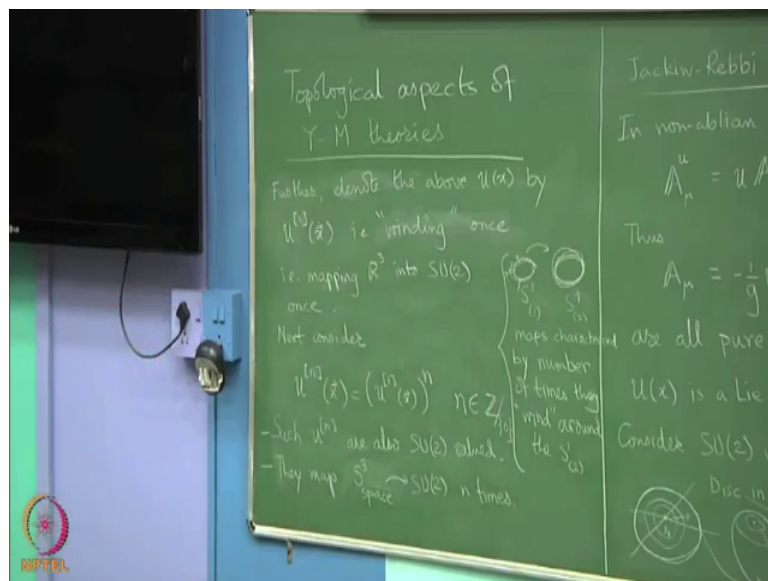 Topological aspects of
Y-M theories
Further, denote the above U(x) by
U^[1](x⃗) ie "winding" once
i.e. mapping R³ into SU(2)
once.
Next consider
U^[n](x⃗) = (U^[1](x⃗))^n n∈Z/{0}
- Such U^[n] are also SU(2) valued.
- They map S³_space ↷ SU(2) n times.
S¹_(1) S¹_(2)
maps charecterised
by number
of times they
"wind" around
the S¹_(2)
Jackiw-Rebbi
In non-ablian
A_μ^U = U A
Thus
A_μ = -i/g
are all pure
U(x) is a Lie
Consider SU(2)
Disc. in
NPTEL